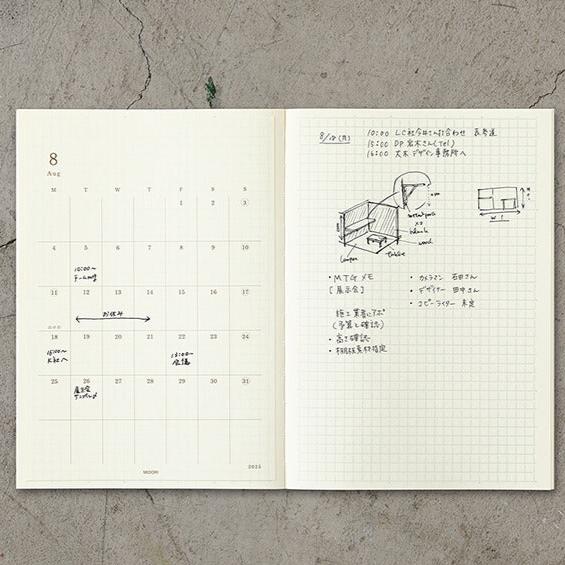 8
Aug
M T W T F S S
1 2 3
4 5 6 7 8 9 10
10:00〜
チームmtg
11 12 13 14 15 16 17
お休み
18 19 20 21 22 23 24
15:00〜
K社へ
13:00〜
会議
25 26 27 28 29 30 31
展示会
MIDORI
2025
8/18(月)
10:00 LC社今井さん打合わせ 表参道
15:00 DP 岩木さん(Tel)
16:00 大木デザイン事務所へ
metal pipe
black
wood
table
・MTG メモ
[展示会]
施工業者にアポ
(予算も確認)
・高さ確認
・棚板素材指定
・カメラマン 石田さん
・デザイナー 田中さん
・コピーライター 未定